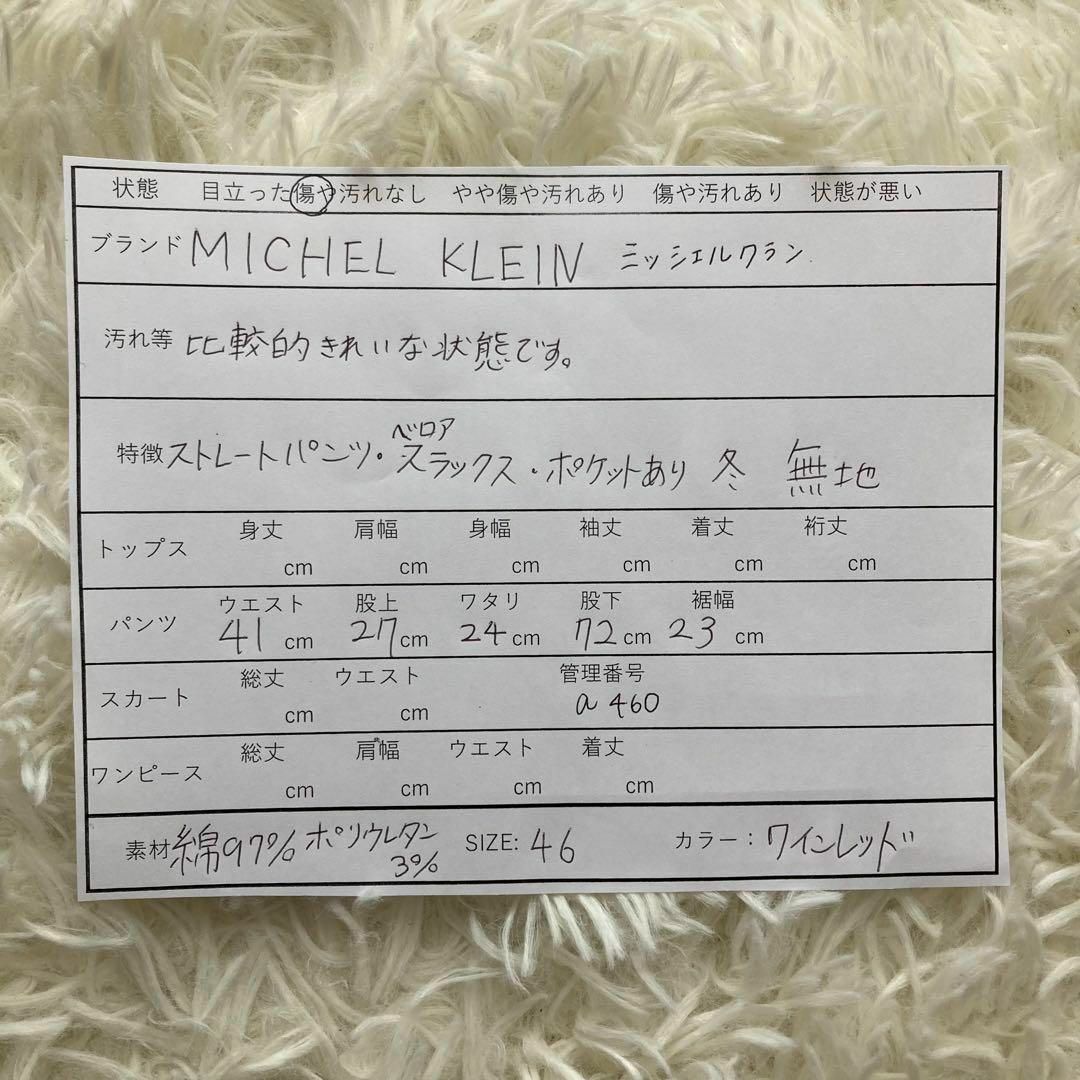 状態 目立った傷や汚れなし やや傷や汚れあり 傷や汚れあり 状態が悪い
ブランド MICHEL KLEIN ミッシェルクラン
汚れ等 比較的きれいな状態です。
ベロア
特徴 ストレートパンツ・スラックス・ポケットあり 冬 無地
身丈 肩幅 身幅 袖丈 着丈 裄丈
トップス cm cm cm cm cm cm
ウエスト 股上 ワタリ 股下 裾幅
パンツ 41 cm 27 cm 24 cm 72 cm 23 cm
総丈 ウエスト 管理番号
スカート cm cm a 460
総丈 肩幅 ウエスト 着丈
ワンピース cm cm cm cm
素材 綿97% ポリウレタン 3% SIZE: 46 カラー：ワインレッド